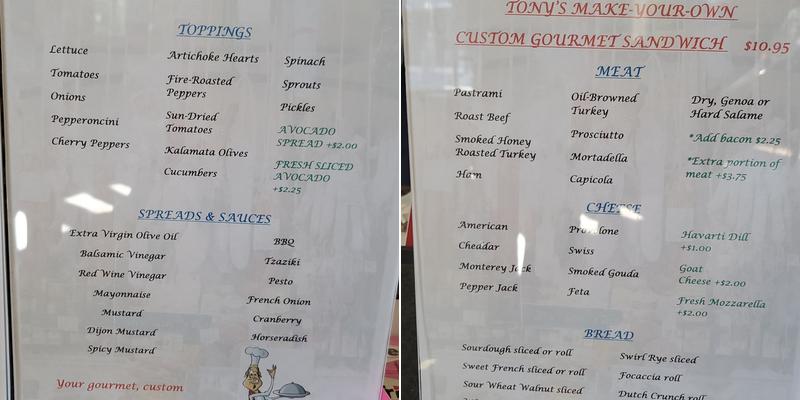 TOPPINGS
Lettuce
Tomatoes
Onions
Pepperoncini
Cherry Peppers
Artichoke Hearts
Fire-Roasted
Peppers
Sun-Dried
Tomatoes
Kalamata Olives
Cucumbers
Spinach
Sprouts
Pickles
AVOCADO
SPREAD +$2.00
FRESH SLICED
AVOCADO
+$2.25
SPREADS & SAUCES
Extra Virgin Olive Oil
Balsamic Vinegar
Red Wine Vinegar
Mayonnaise
Mustard
Dijon Mustard
Spicy Mustard
BBQ
Tzaziki
Pesto
French Onion
Cranberry
Horseradish
Your gourmet, custom
TONY'S MAKE-YOUR-OWN
CUSTOM GOURMET SANDWICH $10.95
MEAT
Pastrami
Roast Beef
Smoked Honey
Roasted Turkey
Ham
Oil-Browned
Turkey
Prosciutto
Mortadella
Capicola
Dry, Genoa or
Hard Salame
*Add bacon $2.25
*Extra portion of
meat +$3.75
CHEESE
American
Cheadar
Monterey Jack
Pepper Jack
Provolone
Swiss
Smoked Gouda
Feta
Havarti Dill
+$1.00
Goat
Cheese +$2.00
Fresh Mozzarella
+$2.00
BREAD
Sourdough sliced or roll
Sweet French sliced or roll
Sour Wheat Walnut sliced
Swirl Rye sliced
Focaccia roll
Dutch Crunch roll